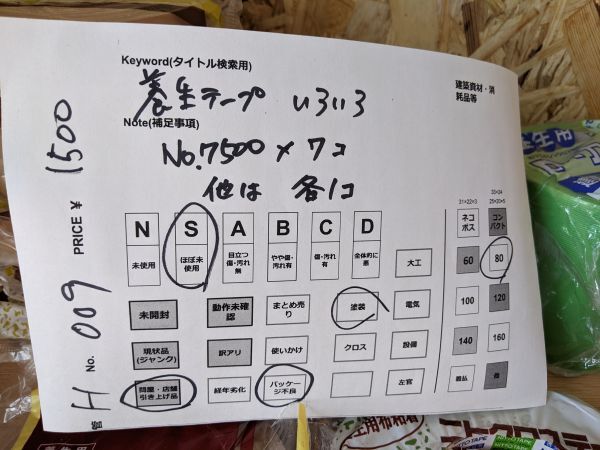 Keyword(タイトル検索用)
建築資材・消
耗品等
養生テープ いろいろ
Note(補足事項)
No.7500 × 7コ
他は 各1コ
PRICE ¥ 1500
No. 009
H
N S A B C D
未使用 ほぼ未使用 目立つ傷・汚れ無 やや傷・汚れ有 傷・汚れ有 全体的に悪
大工
未開封 動作未確認 まとめ売り 塗装 電気
現状品(ジャンク) 訳アリ 使いかけ クロス 設備
問屋・店舗引き上げ品 経年劣化 パッケージ不良 左官
31×22×3
ネコポス コンパクト
60 80
100 120
140 160
着払 他
養生用
NITTOTAPE